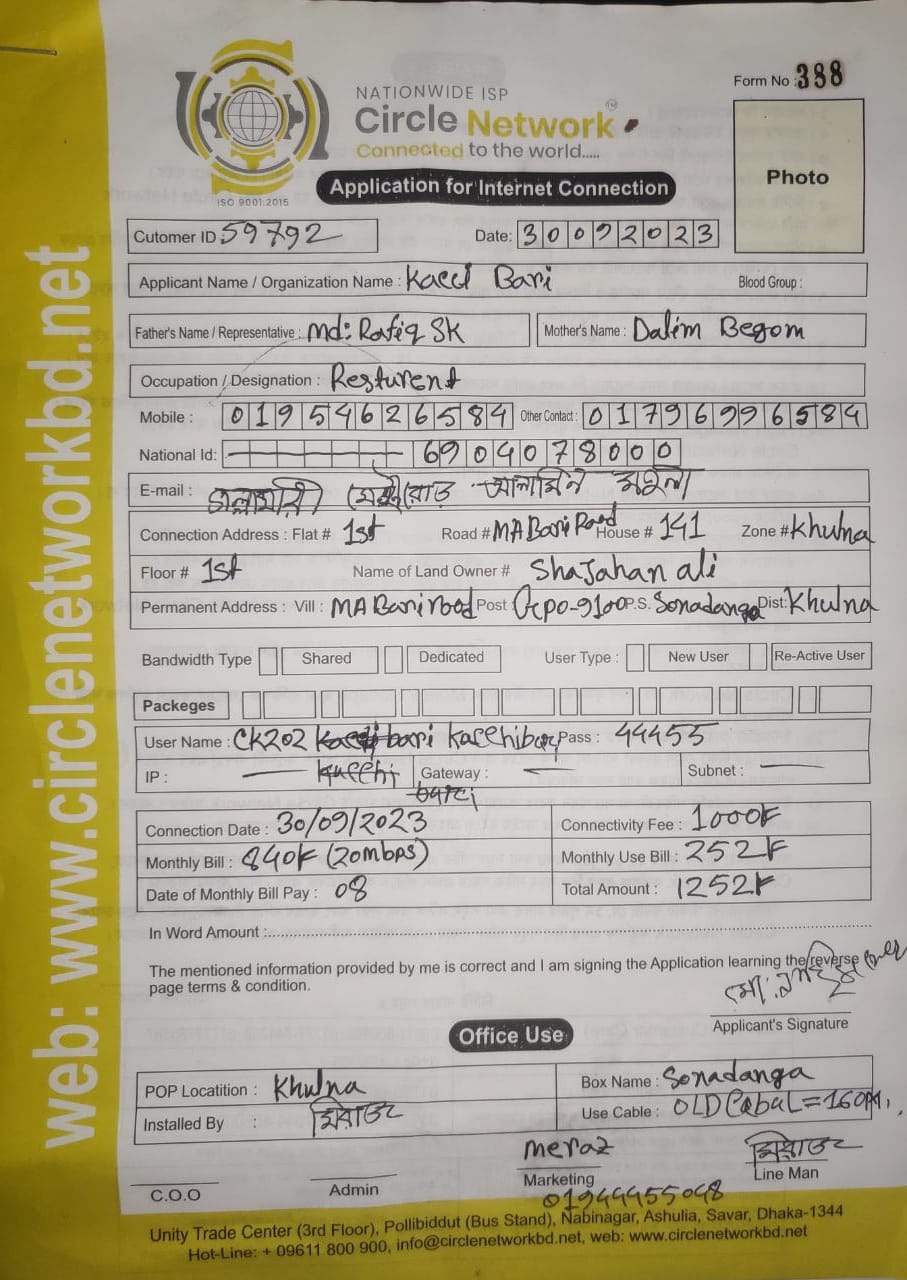 web: www.circlenetworkbd.net
Form No : 388
NATIONWIDE ISP
Circle Network TM
Connected to the world.....
ISO 9001:2015
Photo
Application for Internet Connection
Cutomer ID 59792 Date: 30092023
Applicant Name / Organization Name : Kacci Bari Blood Group :
Father's Name / Representative : Md: Rafiq SK Mother's Name : Dalim Begom
Occupation / Designation : Resturent
Mobile : 01954626584 Other Contact : 01796996584
National Id: 6904078000
E-mail :
Connection Address : Flat # 1st Road # MA Bari Road House # 141 Zone # Khulna
Floor # 1st Name of Land Owner # Shajahan ali
Permanent Address : Vill : MA Bari rood Post : Gcpo-9100 P.S. Sonadanga Dist: Khulna
Bandwidth Type Shared Dedicated User Type : New User Re-Active User
Packeges
User Name : CK202 Kacchibari Pass : 44455
IP : — Kacchi Gateway : — Subnet : —
bari
Connection Date : 30/09/2023 Connectivity Fee : 1000K
Monthly Bill : 840K (20mbps) Monthly Use Bill : 252K
Date of Monthly Bill Pay : 08 Total Amount : 1252K
In Word Amount :
The mentioned information provided by me is correct and I am signing the Application learning the reverse
page terms & condition.
Applicant's Signature
Office Use
POP Locatition : Khulna Box Name : Sonadanga
Installed By : মিরাজ Use Cable : OLD Cabul = 160
Meraz মিরাজ
C.O.O Admin Marketing Line Man
01944455048
Unity Trade Center (3rd Floor), Pollibiddut (Bus Stand), Nabinagar, Ashulia, Savar, Dhaka-1344
Hot-Line: + 09611 800 900, info@circlenetworkbd.net, web: www.circlenetworkbd.net